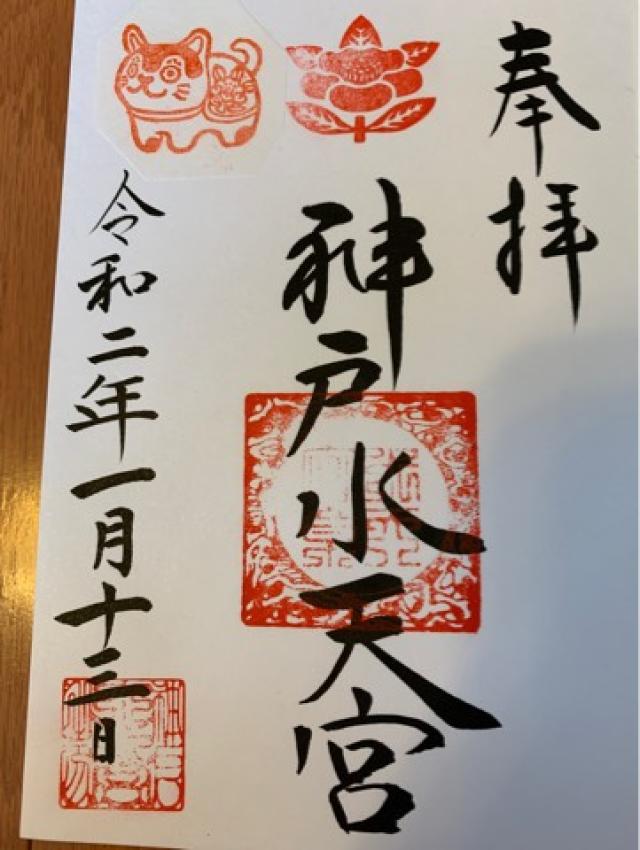 奉拝
神戸水天宮
令和二年一月十三日